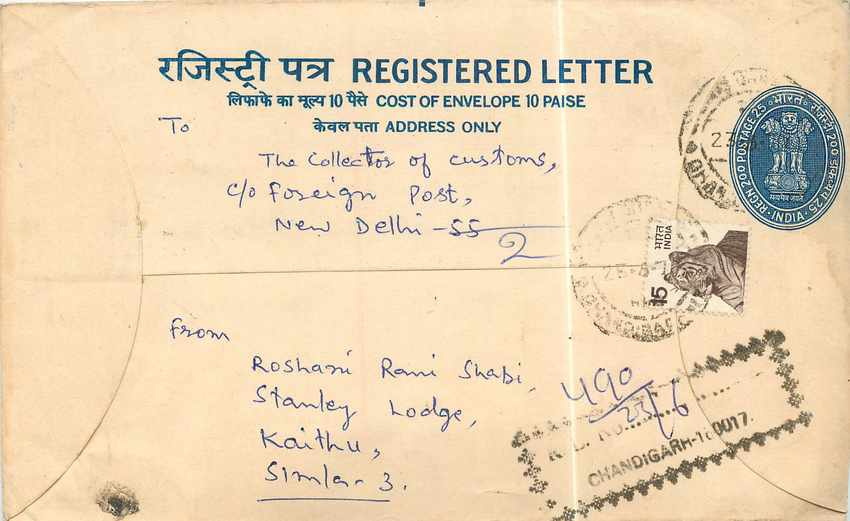 रजिस्ट्री पत्र REGISTERED LETTER
लिफाफे का मूल्य 10 पैसे COST OF ENVELOPE 10 PAISE
केवल पता ADDRESS ONLY
भारत रजिस्ट्री 200 डाक-व्यय 25
REGN 200 POSTAGE 25
सत्यमेव जयते
INDIA
To
The Collector of customs,
c/o Foreign Post,
New Delhi - 55
2
भारत
INDIA
15
From
Roshani Rani Shahi,
Stanley Lodge,
Kaithu,
Simla - 3.
490
23/6
R.L. No.
CHANDIGARH-160017.